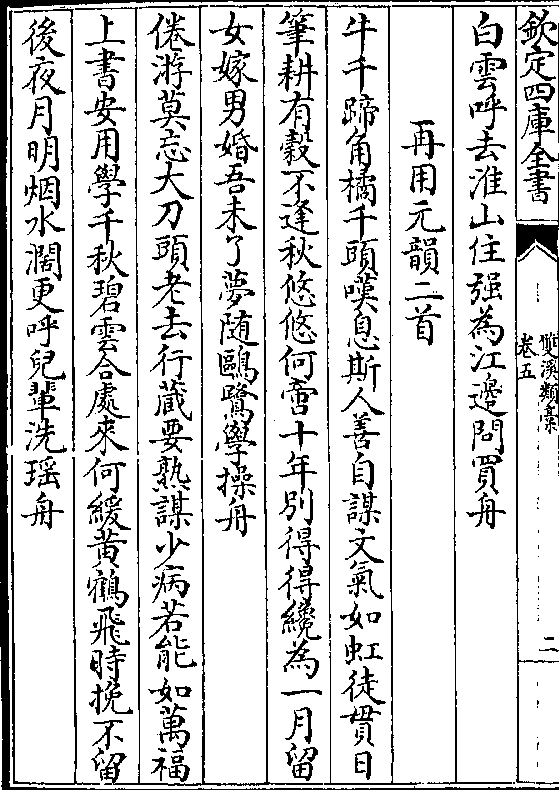 欽定四庫全書
鄮溪類藁
卷五
二
白雲呼去淮山住强為江邊問買舟
再用元韻二首
牛千蹄角橘千頭嘆息斯人善自謀文氣如虹徒貫日
筆耕有穀不逢秋悠悠何啻十年別得得纔為一月留
女嫁男婚吾未了夢随鷗鷺學操舟
倦游莫忘大刀頭老去行蔵要熟謀少病若能如萬福
上書安用學千秋碧雲合處來何緩黄鶴飛時挽不留
後夜月明烟水濶更呼兒輩洗瑶舟